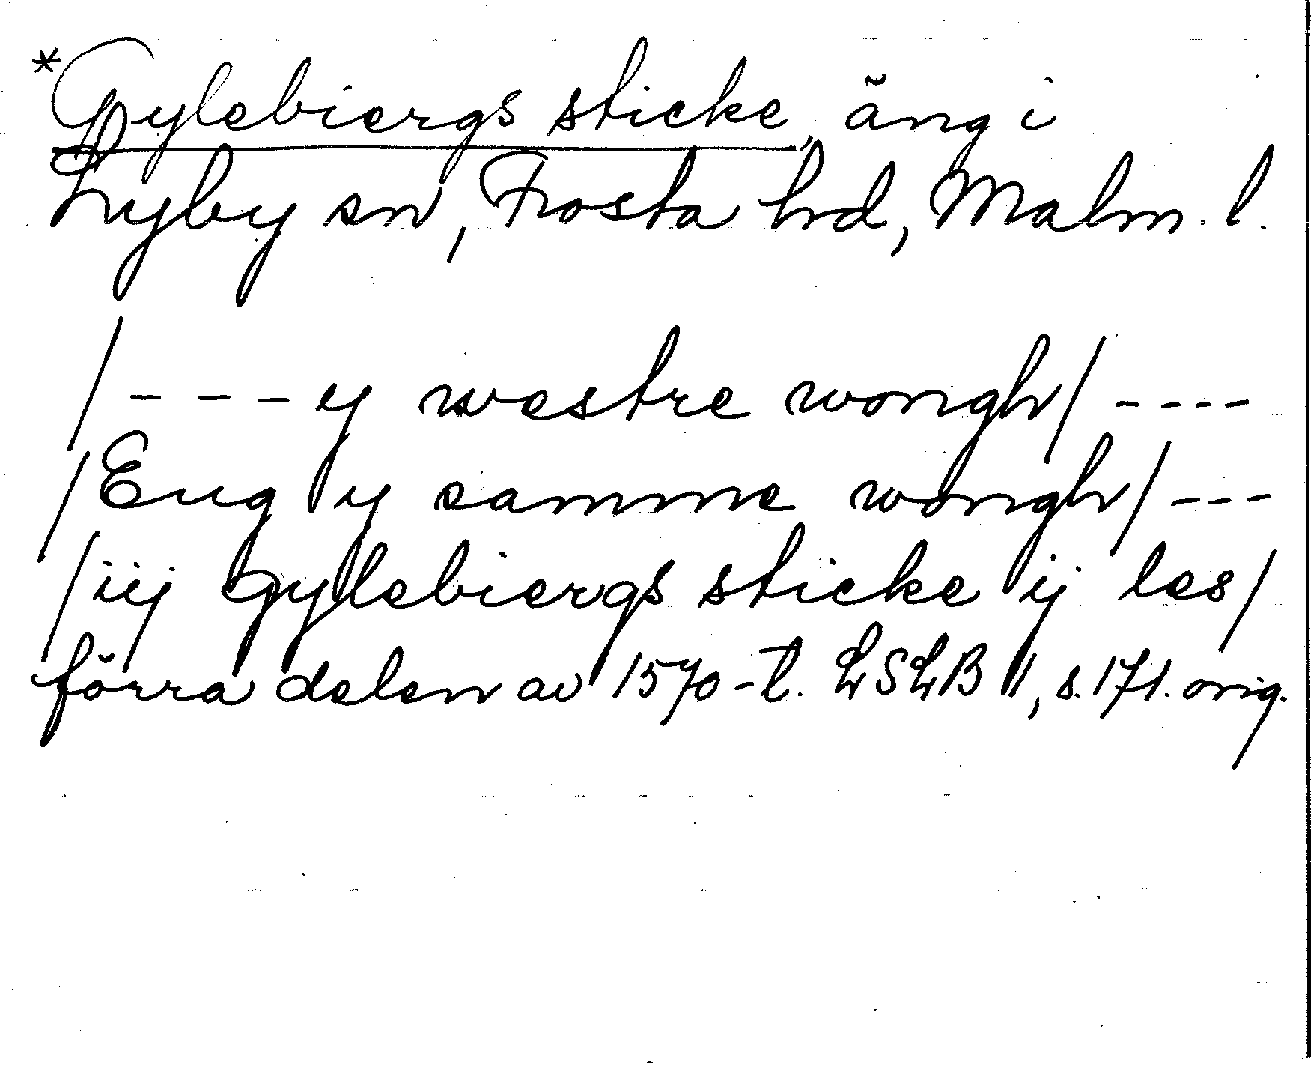 *Gylebiergs sticke, äng i
Lyby sn, Frosta hd, Malm. l.
/- - - y westre wongh/ - - - -
/Eng y samme wongh/ - - -
/iij Gylebiergs sticke ij les/
förra delen av 1570-t. LSLB 1, s. 171. orig.